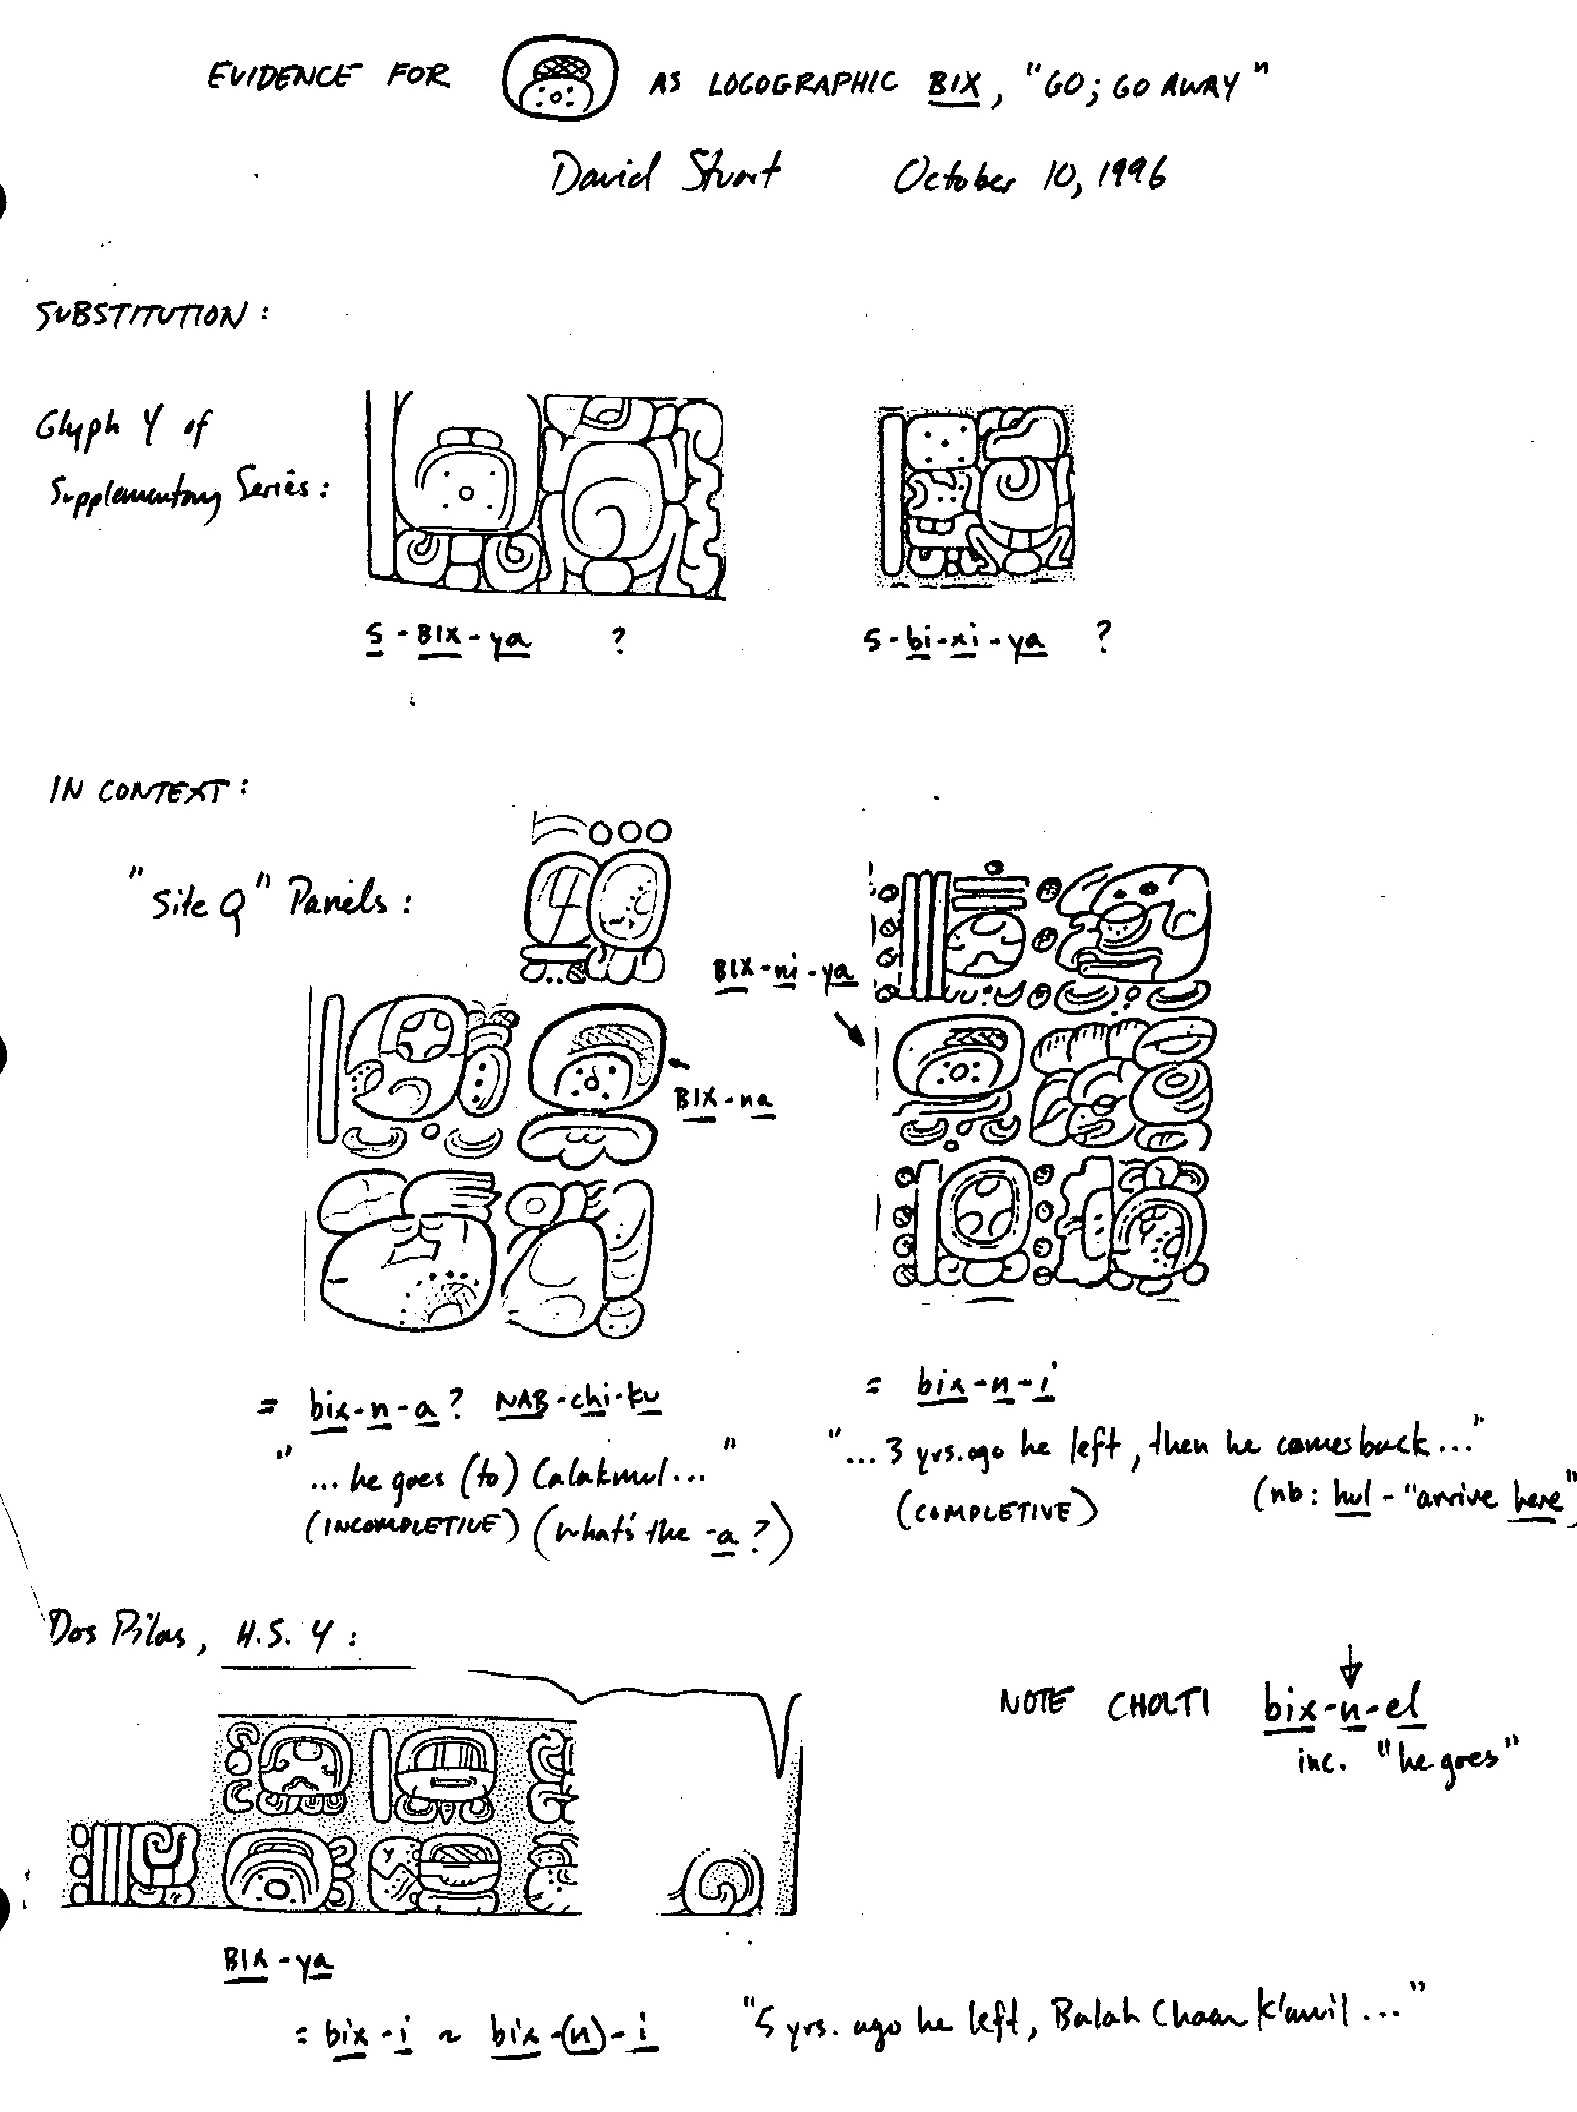 EVIDENCE FOR AS LOGOGRAPHIC BIX, "GO; GO AWAY"
David Stuart October 10, 1996
SUBSTITUTION:
Glyph Y of
Supplementary Series:
5-BIX-ya ? 5-bi-xi-ya ?
IN CONTEXT:
"Site Q" Panels:
BIX-ni-ya
BIX-na
= bix-n-a? NAB-chi-ku
"...he goes (to) Calakmul..."
(INCOMPLETIVE) (what's the -a?)
= bix-n-i
"...3 yrs. ago he left, then he comes back..."
(COMPLETIVE) (nb: hul - "arrive here")
Dos Pilas, H.S. 4:
NOTE CHOLTI bix-n-el
inc. "he goes"
BIX-ya
= bix-i ~ bix-(n)-i "5 yrs. ago he left, Balah Chaan K'awil..."